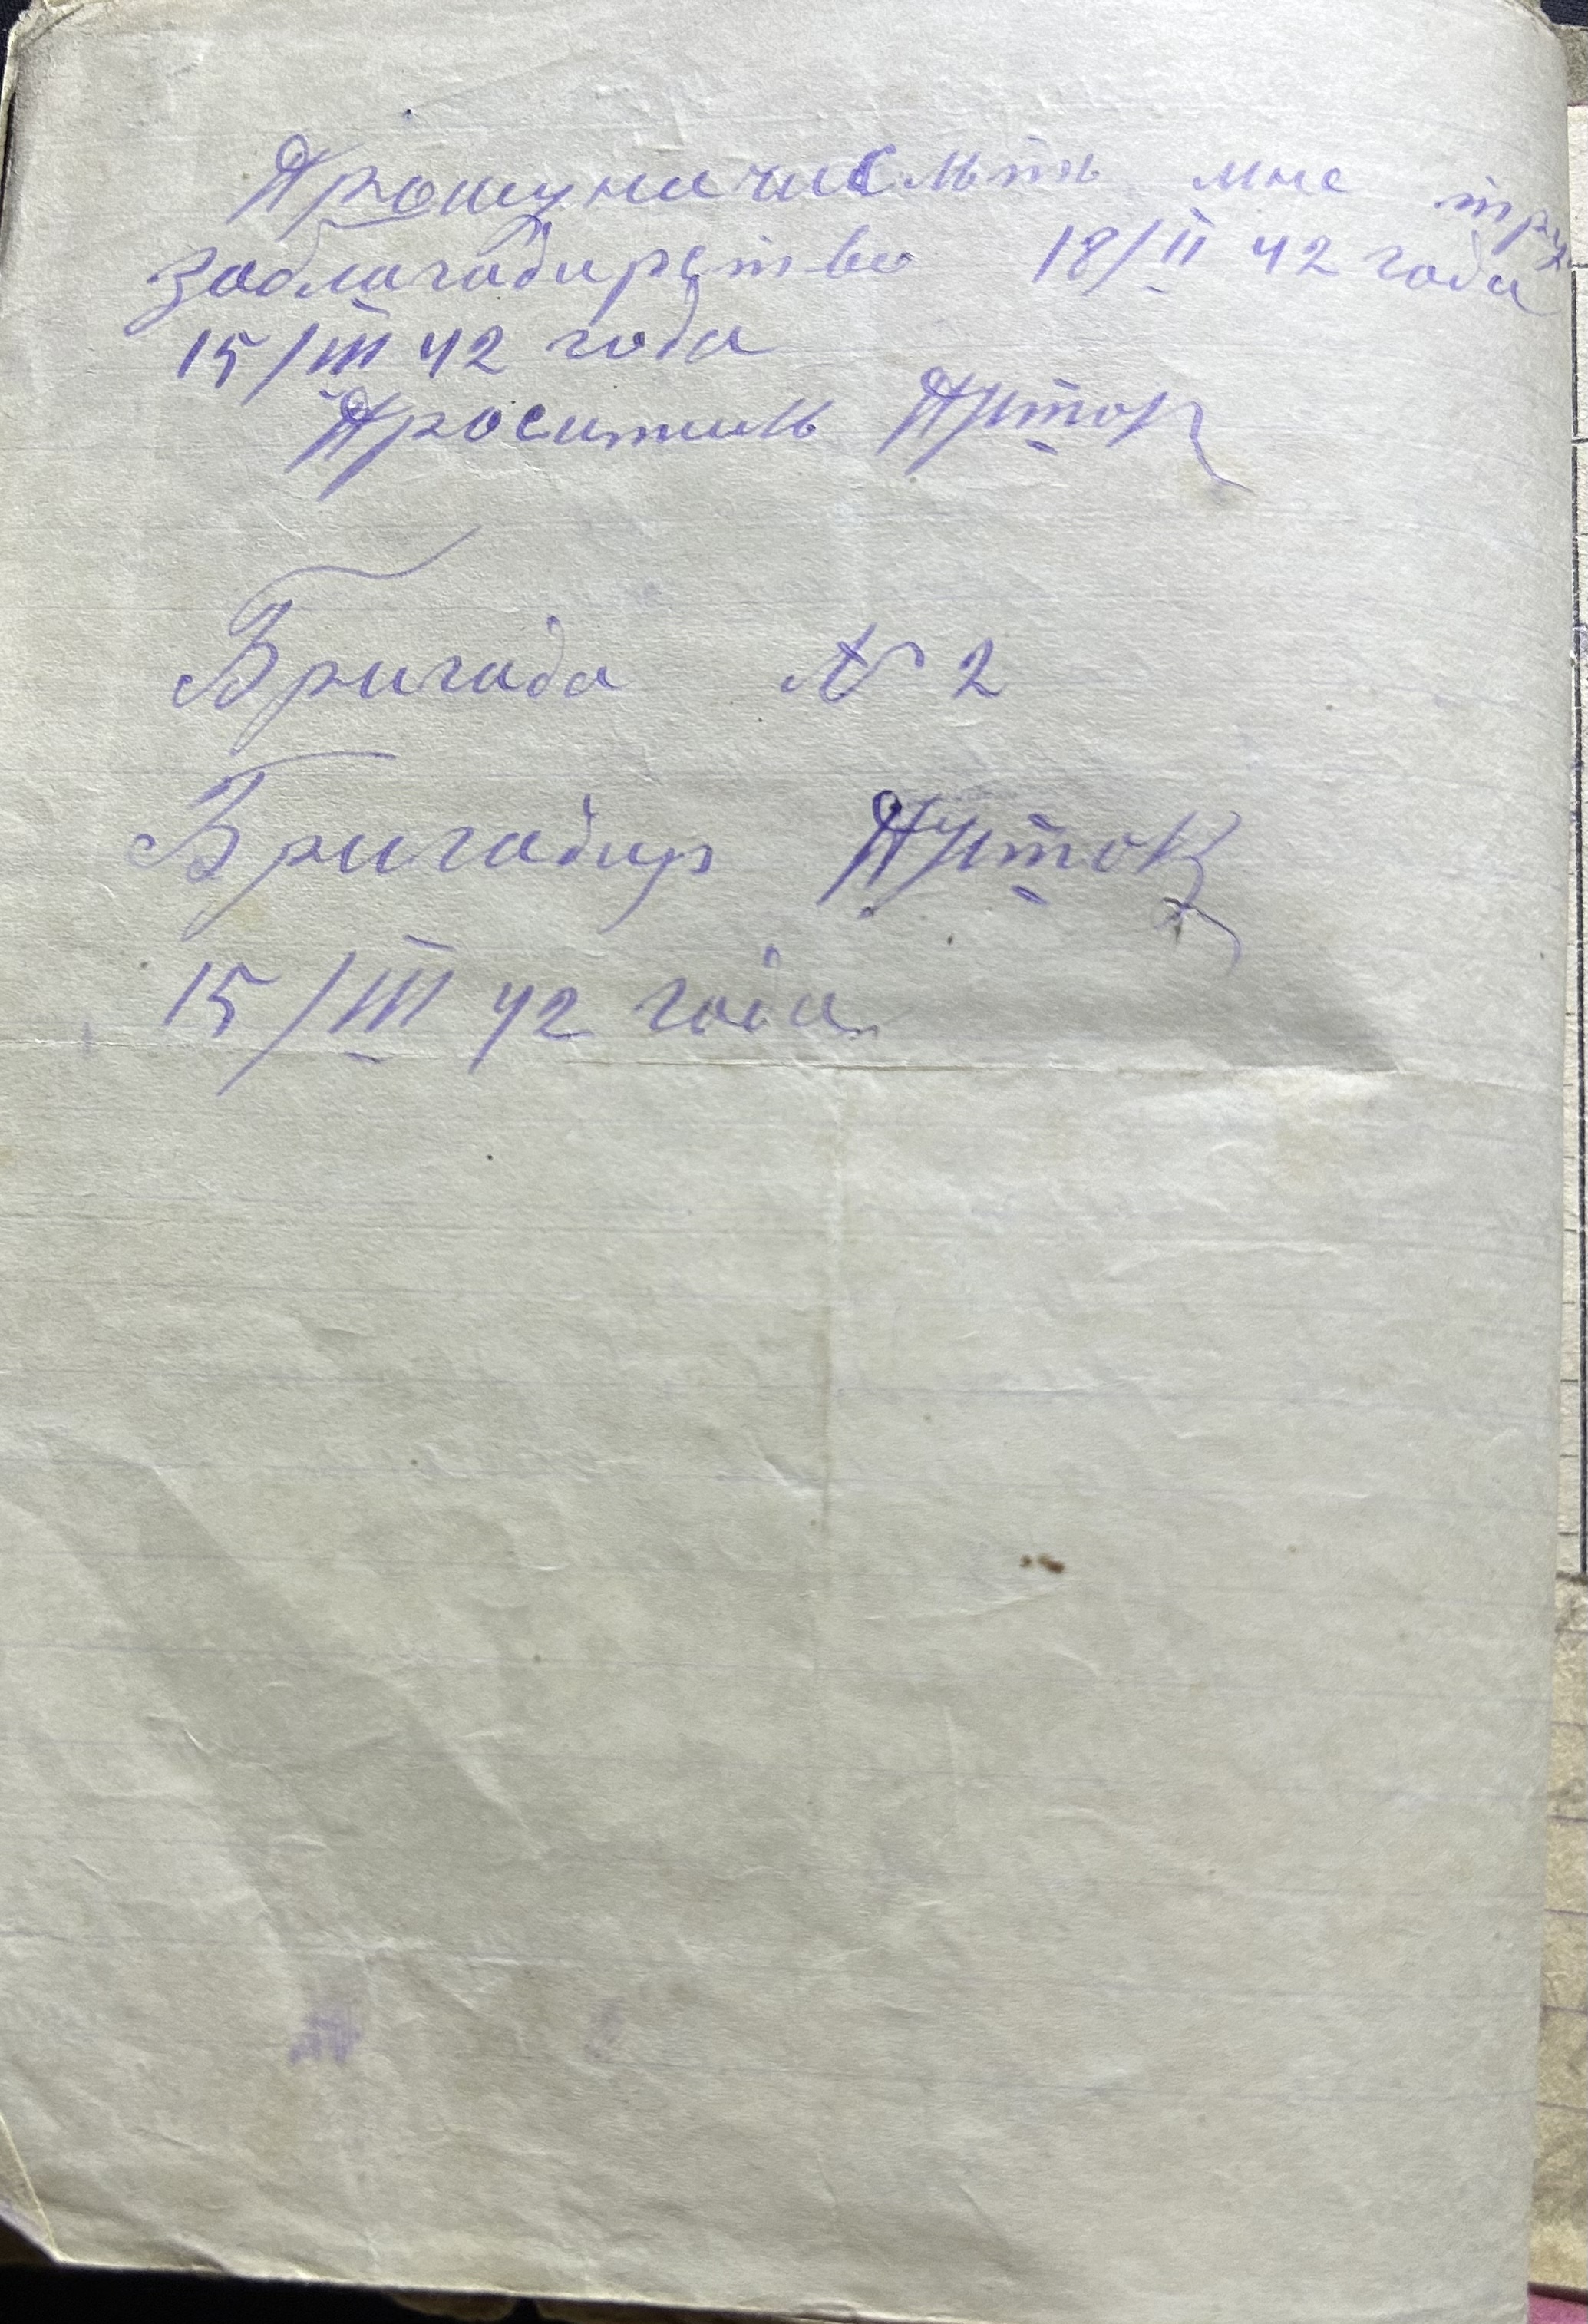 Прошу начислить мне труд
за бригадирство 18/II 42 года
15/III 42 года
Проситель
Бригада № 2
Бригадир
15/III 42 года